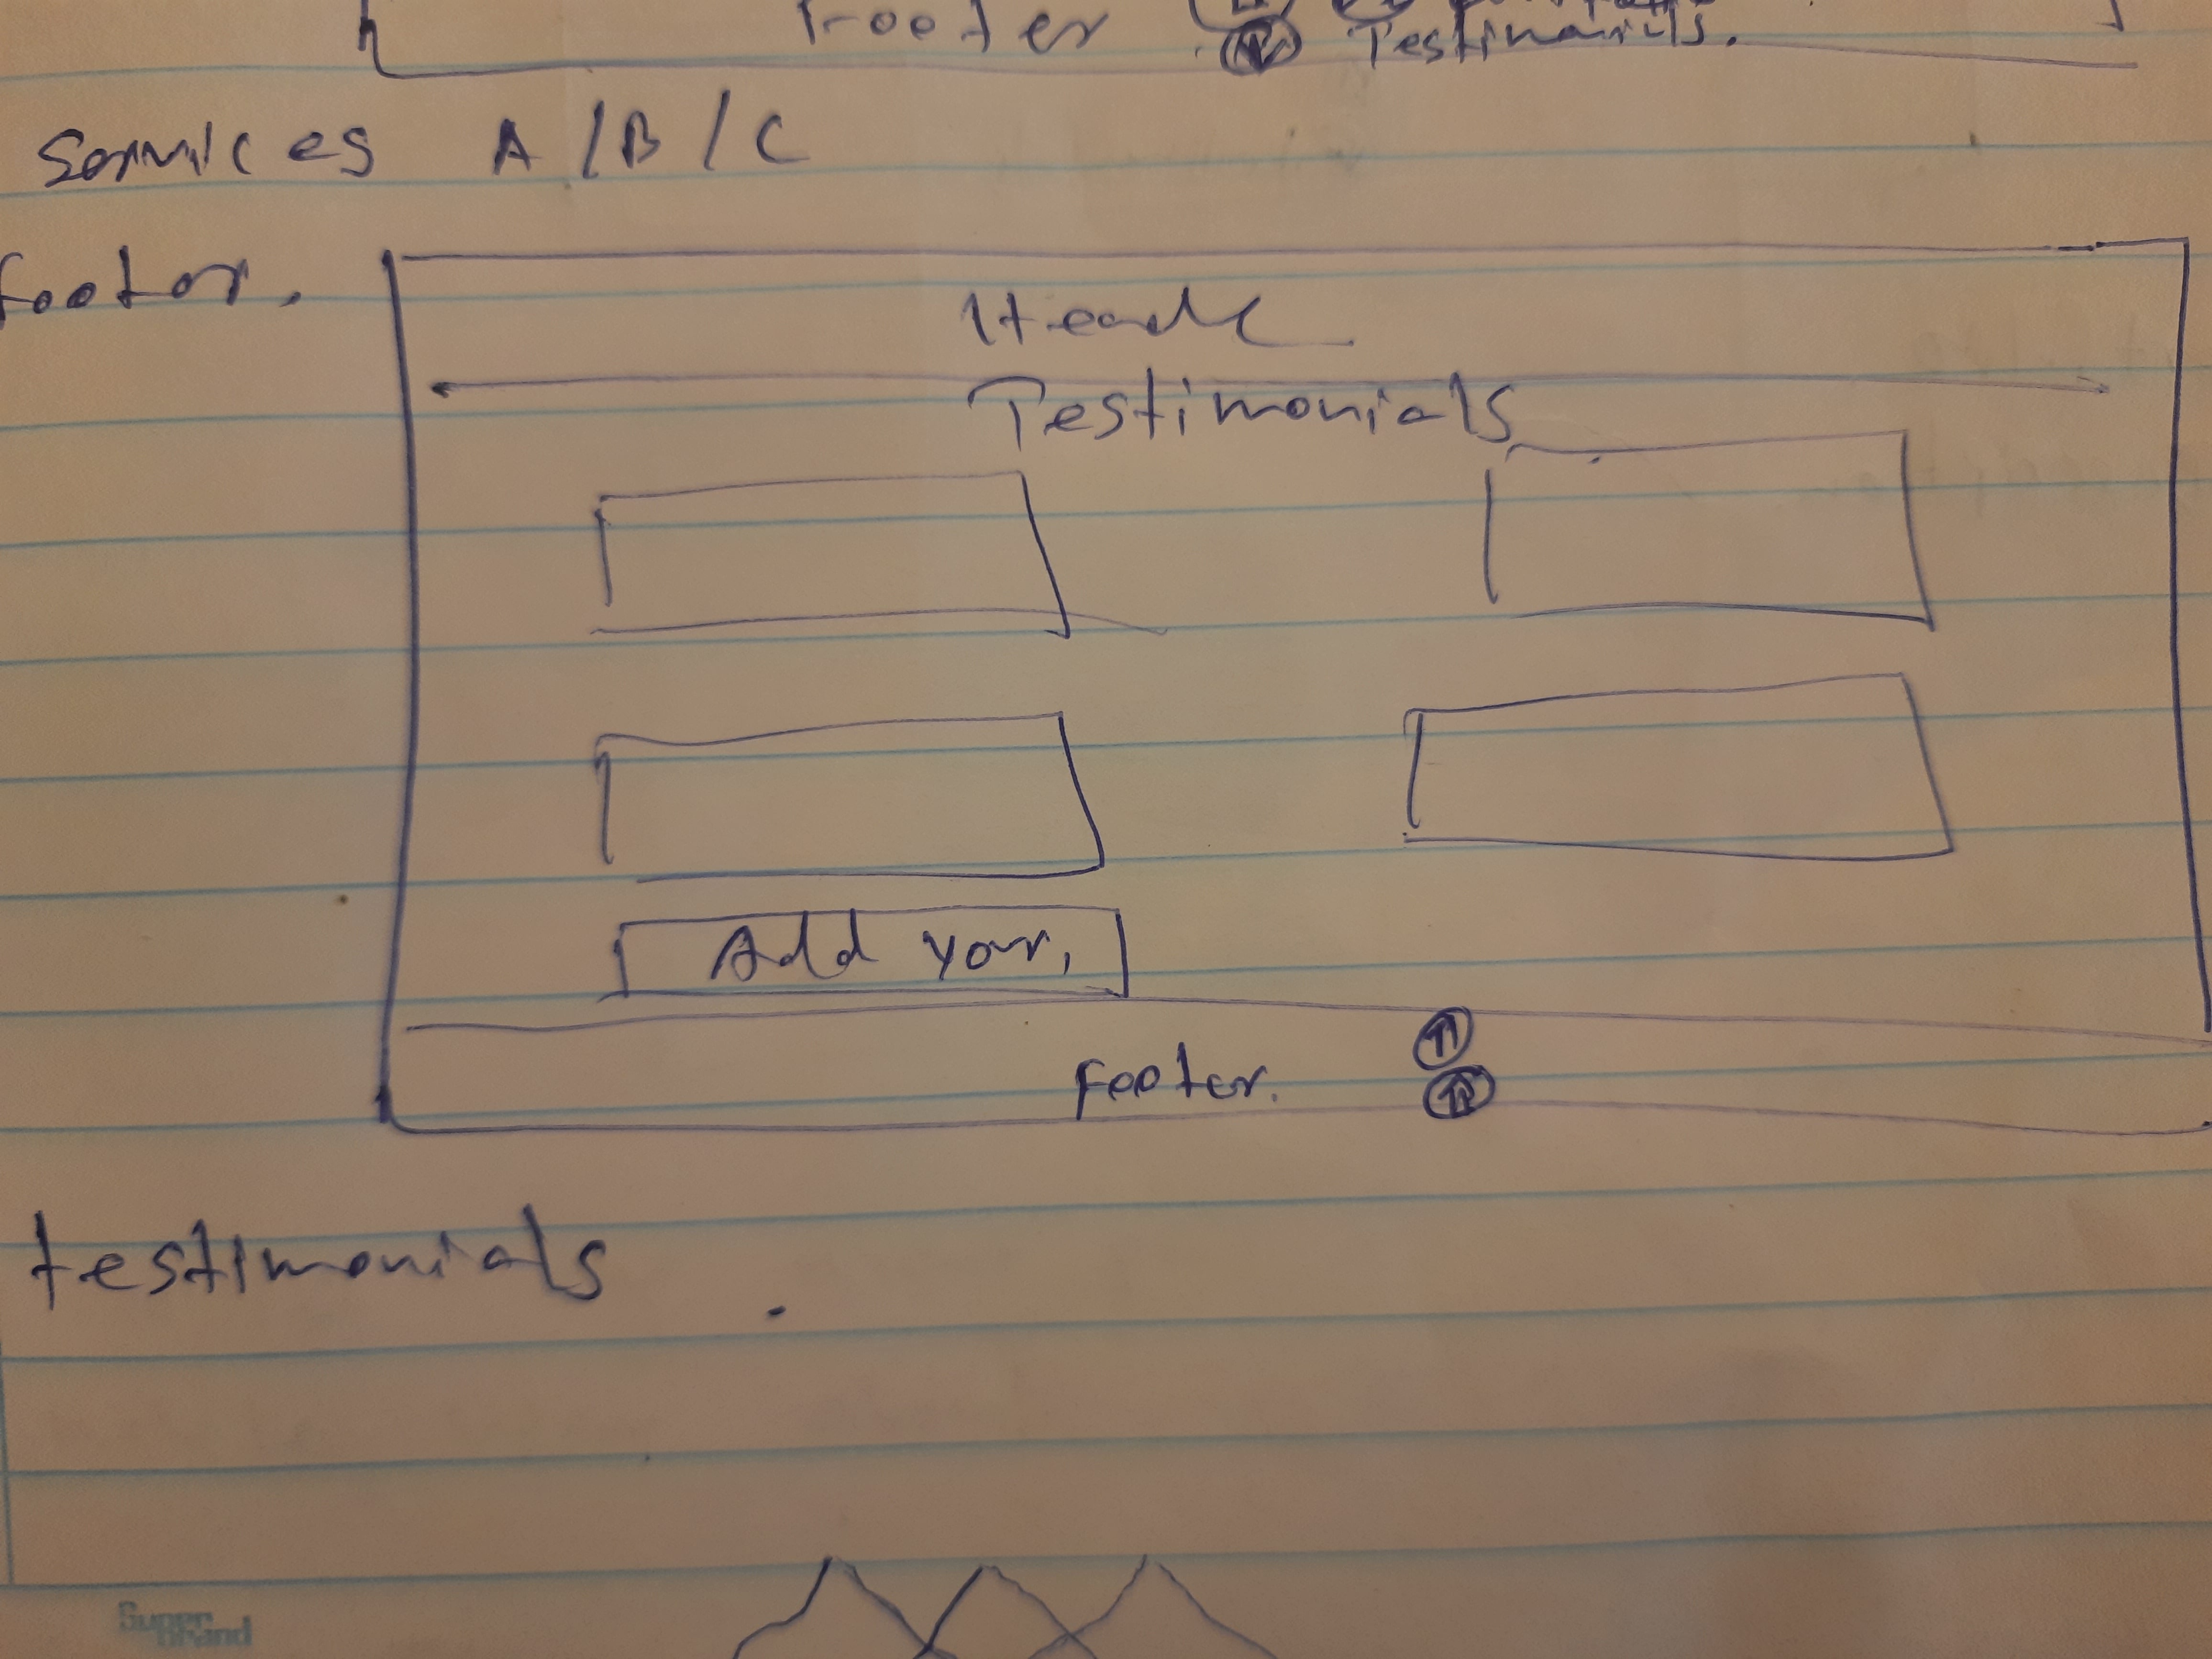 Footer Testimonials.
Services A/B/C
footer.
Heade
Testimonials
Add your,
Footer.
testimonials
Super
Brand